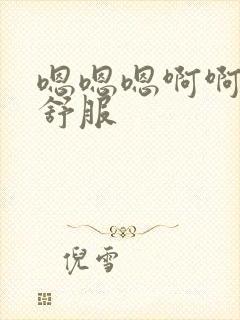 嗯嗯嗯啊啊
舒服
倪雪